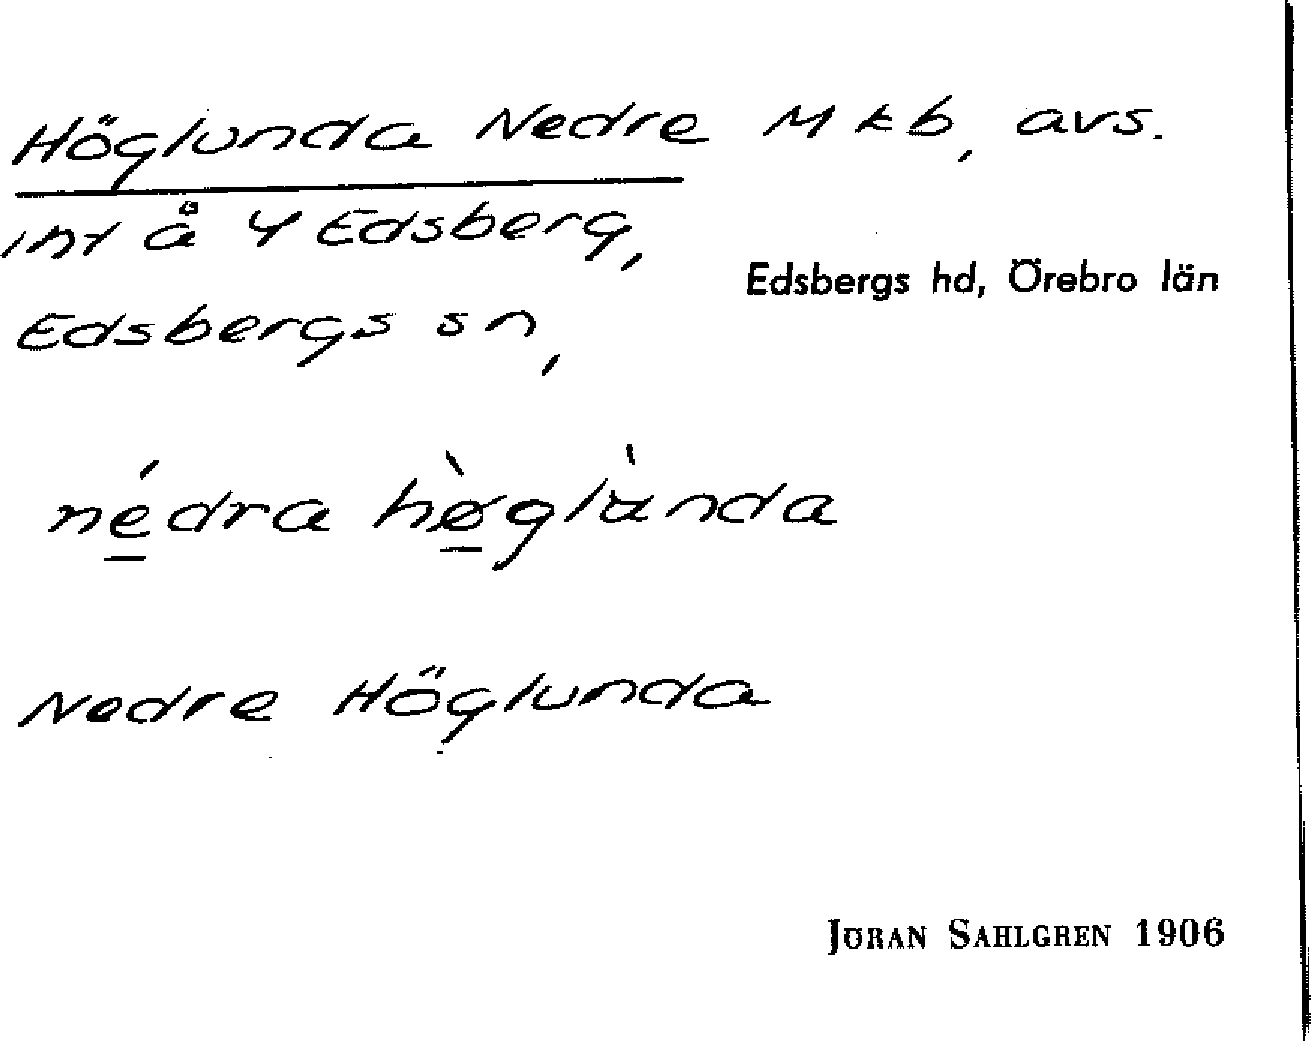 Höglunda Nedre Mkb, avs.
int å Y Edsberg,
Edsbergs hd, Örebro län
Edsbergs sn,
nédra hø̀glùnda
Nedre Höglunda
JÖRAN SAHLGREN 1906